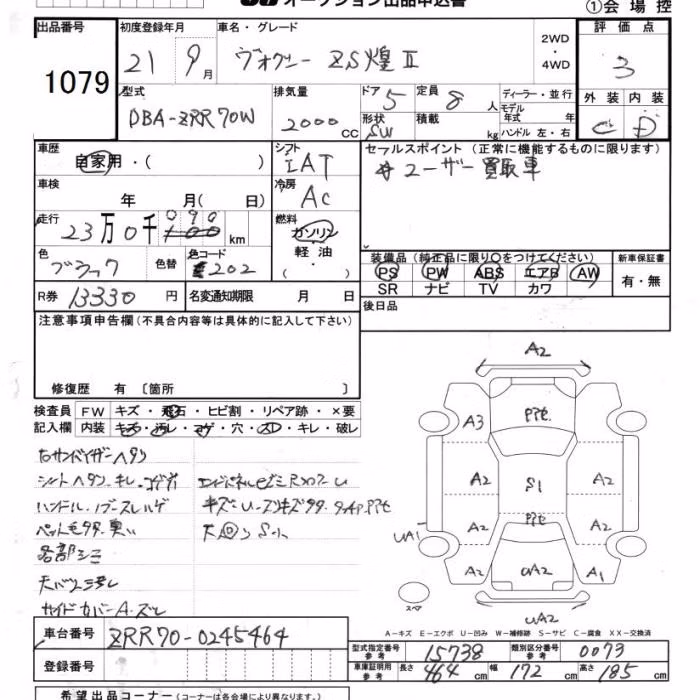 オークション出品申込書
①会場控
出品番号 初度登録年月 車名・グレード 評価点
1079 21 9月 ヴォクシー ZS煌Ⅱ 2WD・4WD 3
型式 排気量 ドア 5 定員 8人 ディーラー・並行 外装 内装
DBA-ZRR70W 2000cc 形状 SW 積載 kg モデル年式 年式 ハンドル 左・右 C D
車歴 シフト セールスポイント (正常に機能するものに限ります)
自家用・( ) IAT ユーザー買取車
車検 年 月( 日) 冷房 AC
走行 23万0千090km 燃料 ガソリン 軽油・( )
装備品 (純正品に限り○をつけてください) 新車保証書
色 ブラック 色替 色コード 202
PS PW ABS エアB AW 有・無
SR ナビ TV カワ
R券 13330円 名変通知期限 月 日 後日品
注意事項申告欄(不具合内容等は具体的に記入して下さい)
修復歴 有 〔箇所 〕
検査員 FW キズ・飛石・ヒビ割・リペア跡・×要
記入欄 内装 キズ・汚れ・コゲ・穴・スレ・キレ・破レ
右サンバイザーヘタリ
シートヘタリ・キレ・コゲ穴
ハンドル・ノブスレハゲ
ペット毛多々・臭い
各部シミ
天バリ汚レ
サイドカバーA・ズレ
A2
A3 PTe
A2 S1 A2
A2 Pte A2
UA1
A2 UA2 A1
スペア
UA2
A-キズ E-エクボ U-凹み W-補修跡 S-サビ C-腐食 XX-交換済
車台番号 ZRR70-0245464
型式指定番号 参考 15738 類別区分番号 参考 0073
登録番号
車庫証明用 参考 長さ 464cm 幅 172cm 高さ 185cm
希望出品コーナー(コーナーは各会場により異なります。)